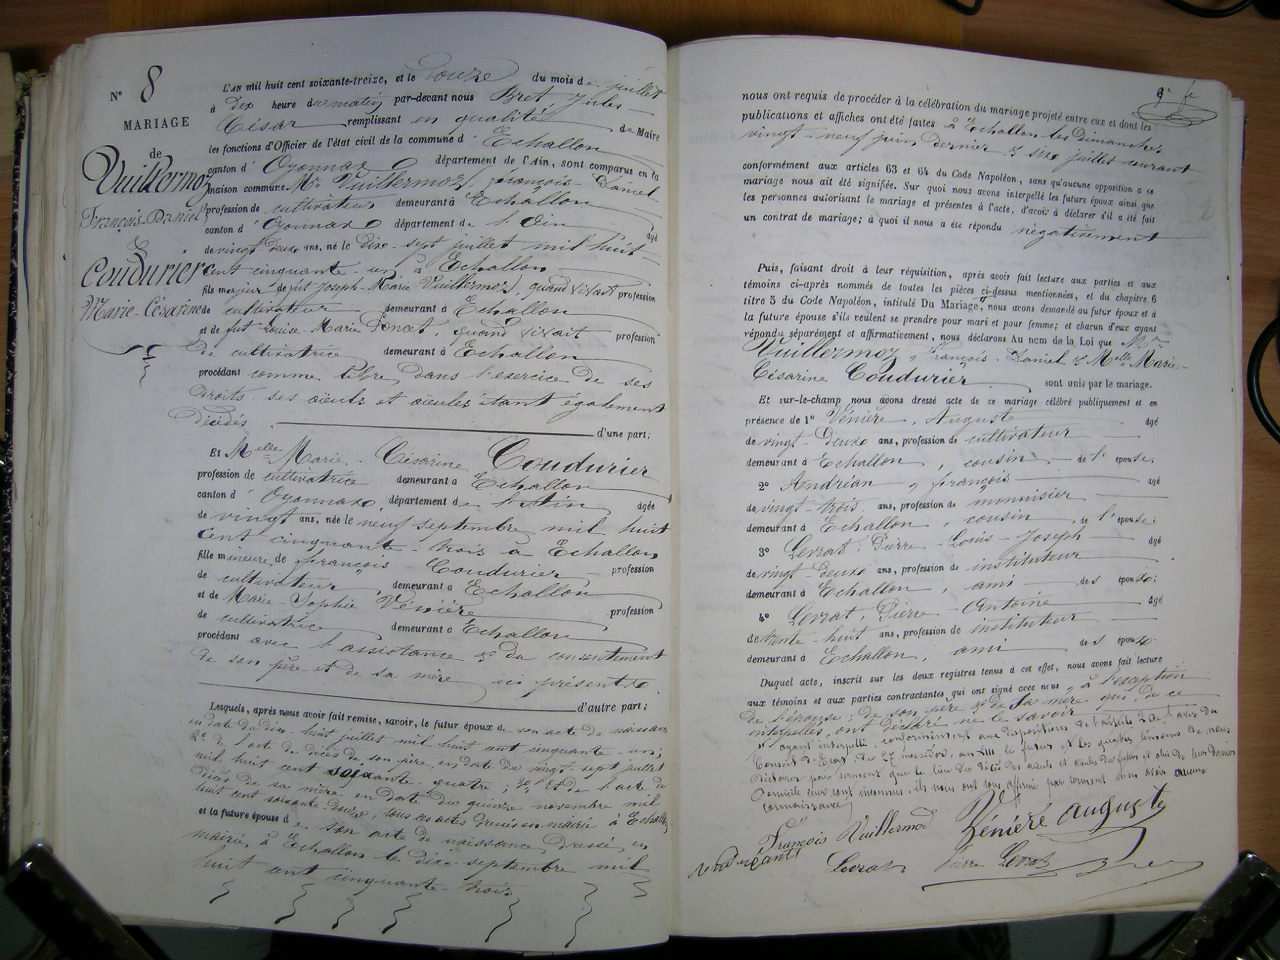 N° 8
MARIAGE
de
Vuillermoz
François-Daniel
&
Coudurier
Marie-Césarine
L'AN mil huit cent soixante-treize, et le douze du mois de juillet
à dix heure du matin par-devant nous Bret Jules
César remplissant en qualité de Maire
les fonctions d'Officier de l'état civil de la commune d'Echallon
canton d'Oyonnax département de l'Ain, sont comparus en la
maison commune Mr Vuillermoz, françois-Daniel
profession de cultivateur demeurant à Echallon
canton d'Oyonnax département de l'Ain âgé
de vingt deux ans, né le dix-sept juillet mil huit
cent cinquante-un à Echallon
fils majeur de feu Joseph-Marie Vuillermoz, quand vivait profession
de cultivateur demeurant à Echallon
et de fut Marie Poncet quand vivait profession
de cultivatrice demeurant à Echallon
procédant comme libre dans l'exercice de ses
droits, ses aïeuls et aïeules étant également
décédés d'une part;
Et Melle Marie-Césarine Coudurier
profession de cultivatrice demeurant à Echallon
canton d'Oyonnax, département de l'Ain âgée
de vingt ans, née le neuf septembre mil huit
cent cinquante-trois à Echallon
fille mineure de françois Coudurier profession
de cultivateur, demeurant à Echallon
et de Marie-Sophie Vénière profession
de cultivatrice demeurant à Echallon
procédant avec l'assistance & du consentement
de son père et de sa mère ici présents
d'autre part;
Lesquels, après nous avoir fait remise, savoir, le futur époux de son acte de naissance
en date du dix-huit juillet mil huit cent cinquante-un;
2° de l'acte de décès de son père, en date du vingt-sept juillet
mil huit cent soixante-quatre; 3° et de l'acte de
décès de sa mère en date du quinze novembre mil
huit cent soixante deux, tous ces actes dressés en mairie à Echallon
et la future épouse de son acte de naissance dressé, en
mairie, à Echallon le dix septembre mil
huit cent cinquante-trois
nous ont requis de procéder à la célébration du mariage projeté entre eux et dont les
publications et affiches ont été faites à Echallon les Dimanches
vingt-neuf juin dernier & six juillet courant
conformément aux articles 63 et 64 du Code Napoléon, sans qu'aucune opposition a ce
mariage nous ait été signifiée. Sur quoi nous avons interpellé les futurs époux ainsi que
les personnes autorisant le mariage et présentes à l'acte, d'avoir à déclarer s'il a été fait
un contrat de mariage; à quoi il nous a été répondu négativement
Puis, faisant droit à leur réquisition, après avoir fait lecture aux parties et aux
témoins ci-après nommés de toutes les pièces ci-dessus mentionnées, et du chapitre 6
titre 5 du Code Napoléon, intitulé Du Mariage, nous avons demandé au futur époux et à
la future épouse s'ils veulent se prendre pour mari et pour femme; et chacun d'eux ayant
répondu séparément et affirmativement, nous déclarons Au nom de la Loi que Mr
Vuillermoz, François-Daniel & Melle Marie-
Césarine Coudurier sont unis par le mariage.
Et sur-le-champ nous avons dressé acte de ce mariage célébré publiquement et en
présence de 1° Vénière, Auguste âgé
de vingt-deux ans, profession de cultivateur
demeurant à Echallon, cousin de l'épouse;
2° Andréan, françois âgé
de vingt-trois ans, profession de menuisier
demeurant à Echallon, cousin de l'épouse;
3° Levrat-Pierre-Louis-Joseph âgé
de vingt-deux ans, profession de instituteur
demeurant à Echallon, ami des époux;
4° Levrat, Pierre-Antoine âgé
de trente-huit ans, profession de instituteur
demeurant à Echallon, ami des époux.
Duquel acte, inscrit sur les deux registres tenus à cet effet, nous avons fait lecture
aux témoins et aux parties contractantes, qui ont signé avec nous, à l'exception
de l'épouse; de son père & de sa mère qui, de ce
interpellés, ont déclaré ne le savoir
François Vuillermoz
Vénière Auguste
Levrat
Pierre Levrat